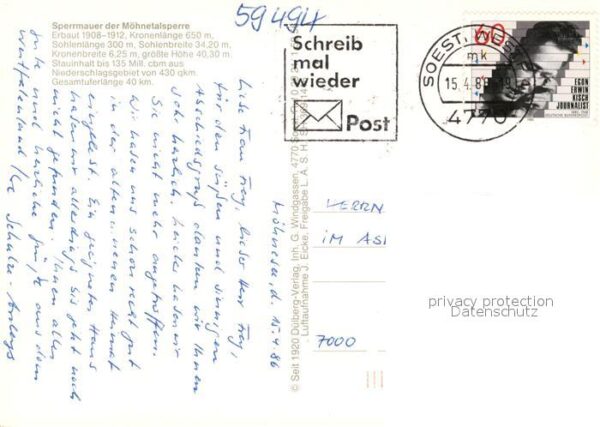 59494
Sperrmauer der Möhnetalsperre
Erbaut 1908-1912, Kronenlänge 650 m,
Sohlenlänge 300 m, Sohlenbreite 34,20 m,
Kronenbreite 6,25 m, größte Höhe 40,30 m
Stauinhalt bis 135 Mill. cbm aus
Niederschlagsgebiet von 430 qkm.
Gesamtuferlänge 40 km.
Schreib
mal
wieder
Post
SOEST, WESTF
mk
15.4.8
4770
60
EGON
ERWIN
KISCH
JOURNALIST
DEUTSCHE BUNDESPOST
Möhnesee, d. 15.4.86
Liebe Frau Frey, lieber Herr Frey,
für den süßen und
Abschiedsgruß danken wir Ihnen
sehr herzlich. Leider haben wir
Sie nicht mehr angetroffen.
Wir haben uns schon recht gut
in der alten-neuen Heimat
eingelebt. Ein geeignetes Haus
haben wir allerdings bis jetzt noch
nicht gefunden. Ihnen alles
Gute und herzliche Grüße aus dem
Westfalenland Ihre Schulze-
© Seit 1920 Dülberg-Verlag, Inh. G. Windgassen, 4770 S
Luftaufnahme J. Eicke, Freigabe L. A. S. H
HERRN
IM AS
7000
privacy protection
Datenschutz